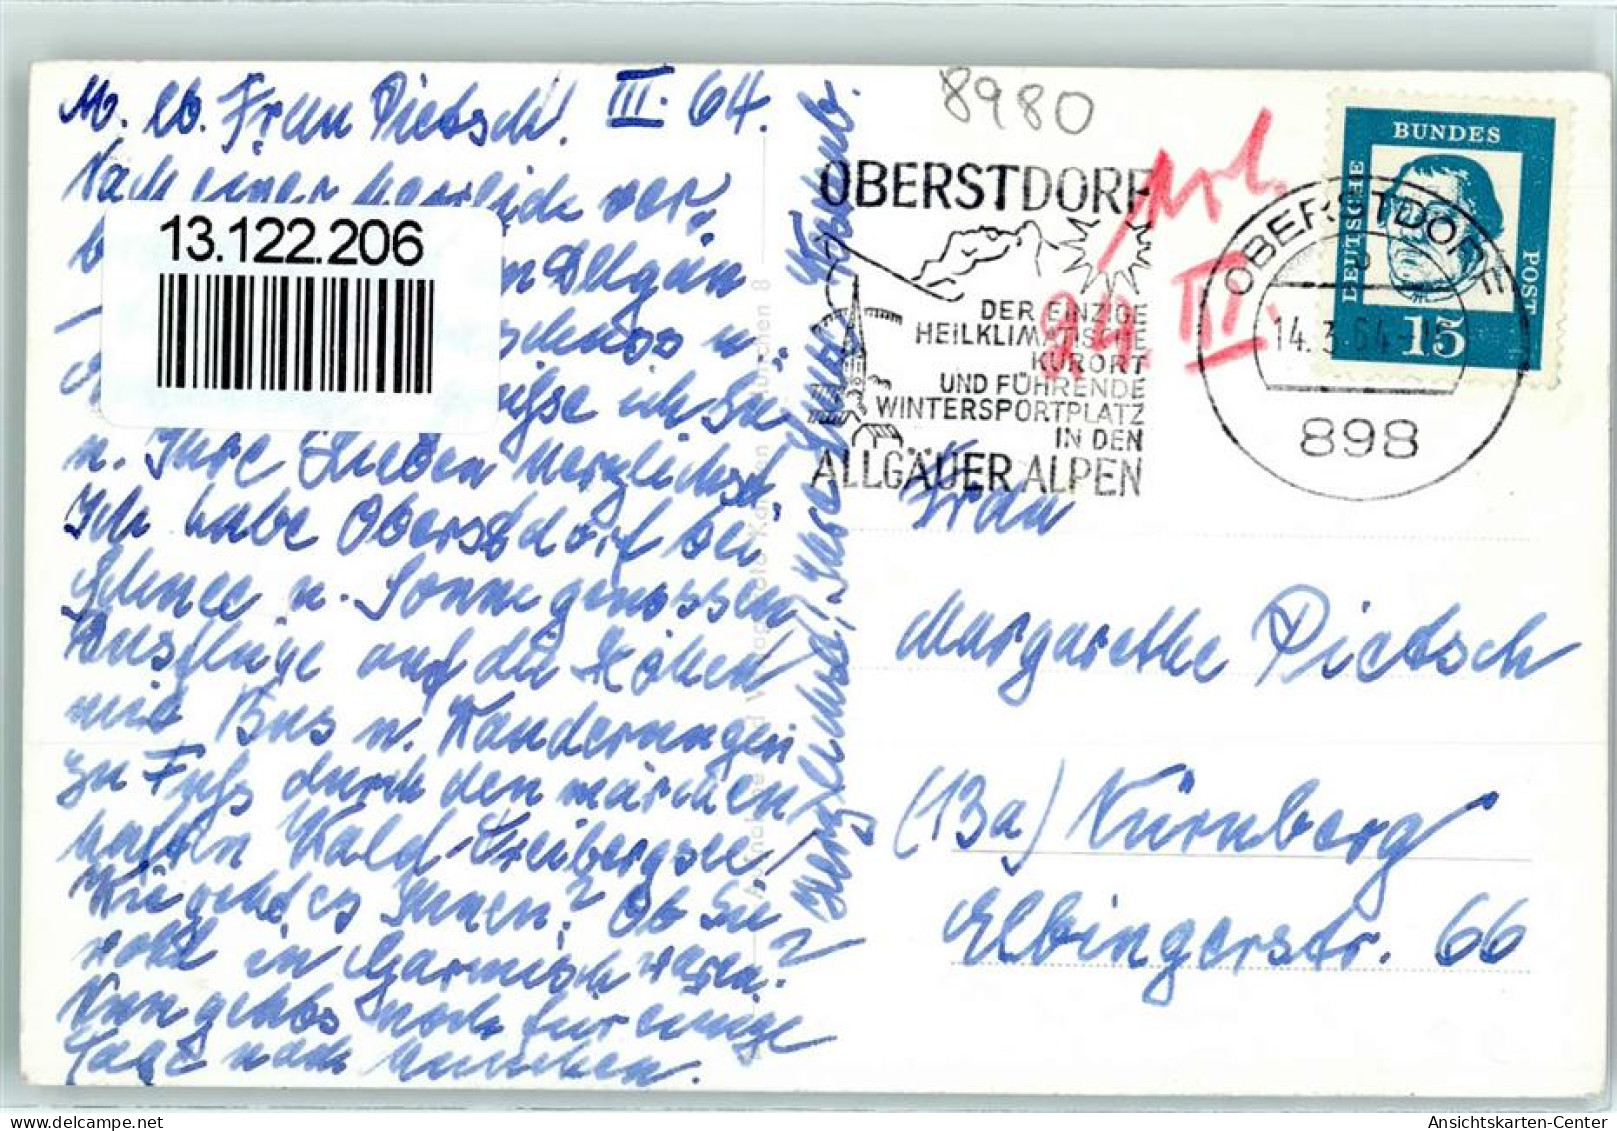 M. lb. Frau Pietsch! III. 64.
Nach einer herrlich ver-
13.122.206
Allgäu
schuss u.
ich Sie
u. Ihre Lieben herzlichst.
Ich habe Oberstdorf bei
Schnee u. Sonne genossen
Ausflüge auf die Höhen
mit Bus u. Wanderungen
zu Fuß durch den märchen
haften Wald Freibergsee.
Wie geht es Ihnen? Ob Sie
wohl in Garmisch waren?
Nun gehts noch für einige
Tage nach München.
Herzlichst! Ihre
8980
OBERSTDORF
DER EINZIGE
HEILKLIMATISCHE
KURORT
UND FÜHRENDE
WINTERSPORTPLATZ
IN DEN
ALLGÄUER ALPEN
III.
OBERSTDORF
14.3.64
898
DEUTSCHE
BUNDES
POST
15
Frau
Margarethe Pietsch
(13a) Nürnberg
Elbingerstr. 66
Ansichtskarten-Center